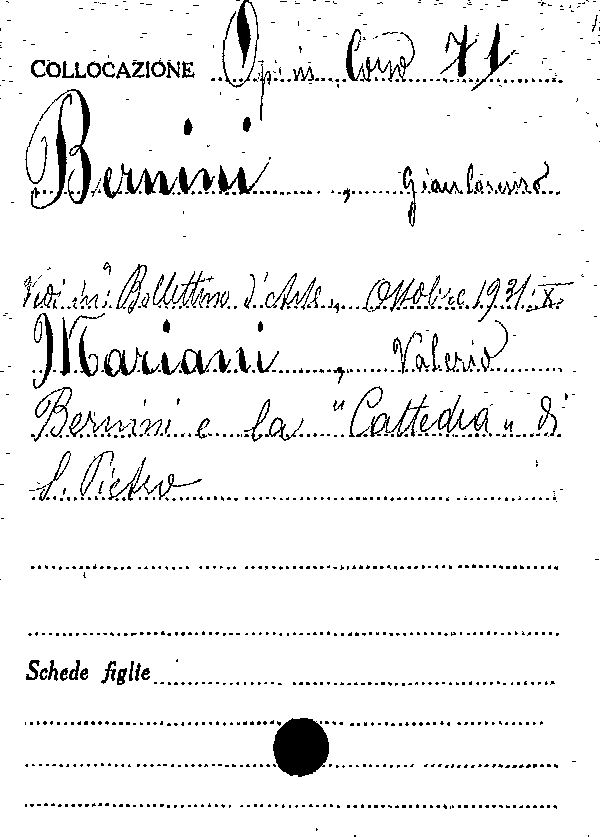 COLLOCAZIONE Op. in Corso 71
Bernini, Gianlorenzo
Vedi in: "Bollettino d'Arte„ Ottobre 1931.X.
Mariani, Valerio
Bernini e la "Cattedra„ di
S. Pietro
Schede figlie